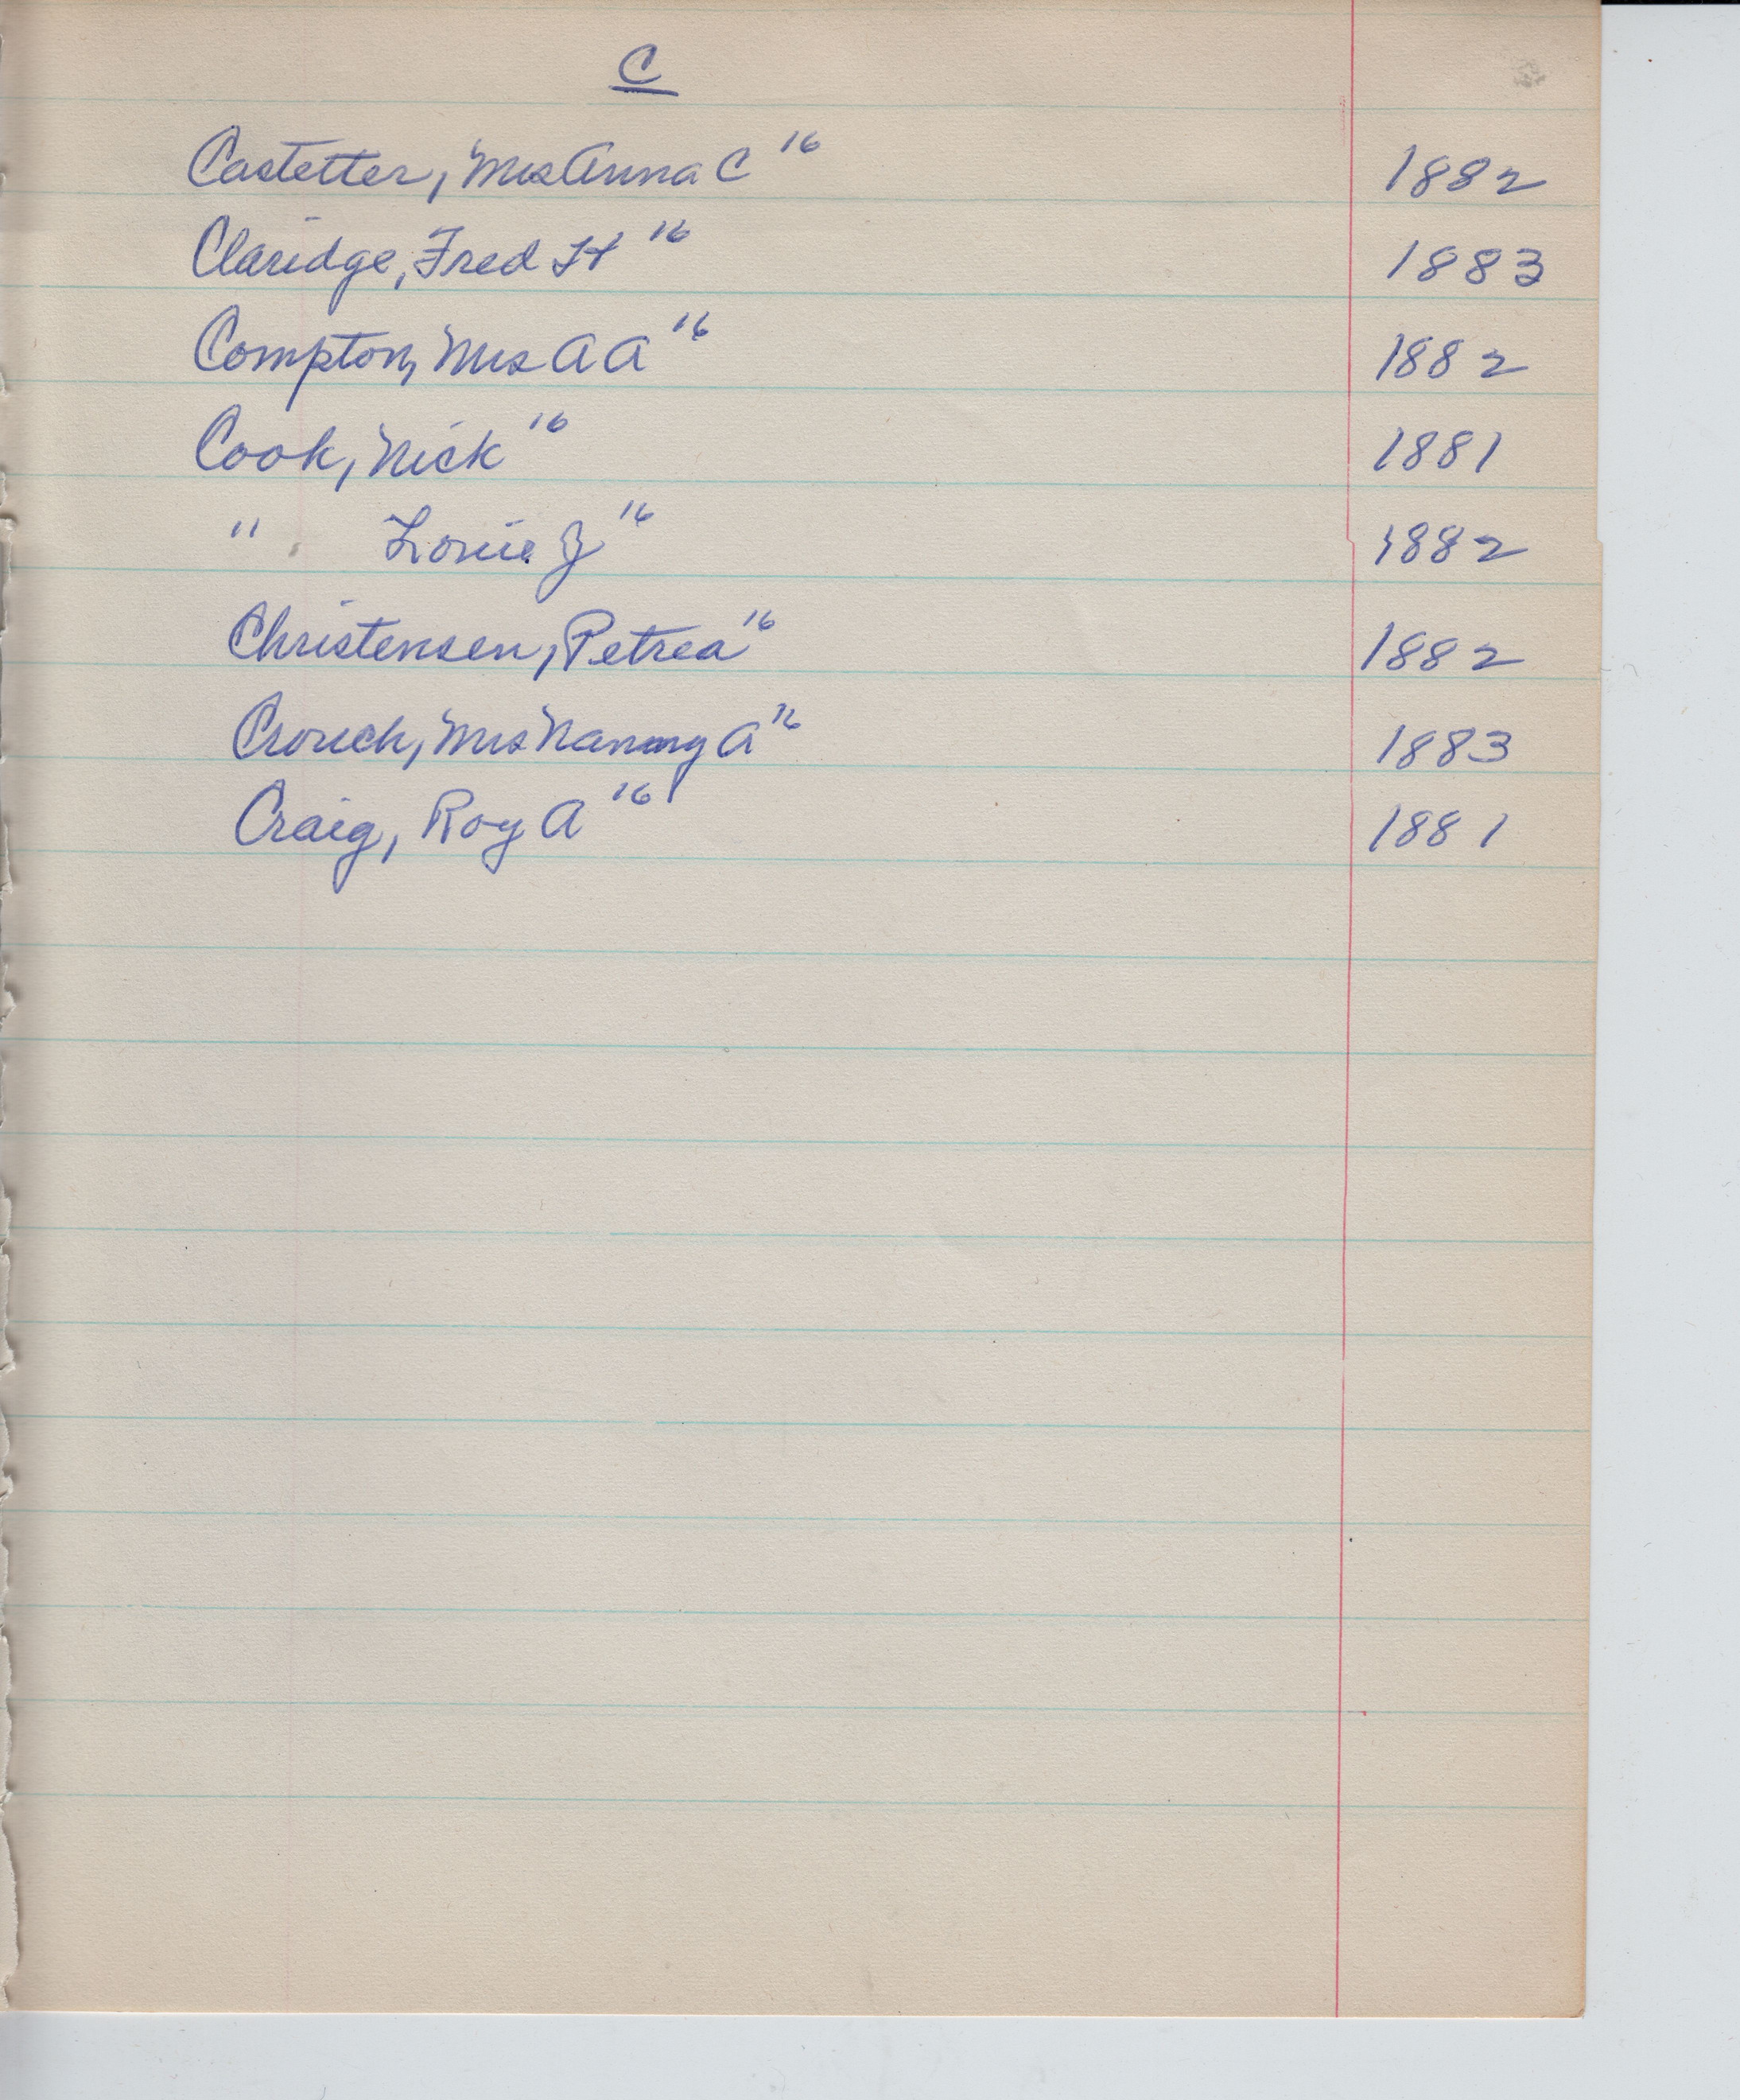 C
Castetter, Mrs Anna C "16 1882
Claridge, Fred H "16 1883
Compton, Mrs A A "16 1882
Cook, Nick "16 1881
" Louie J "16 1882
Christensen, Petrea "16 1882
Crouch, Mrs Nanny A "16 1883
Craig, Roy A "16 1881